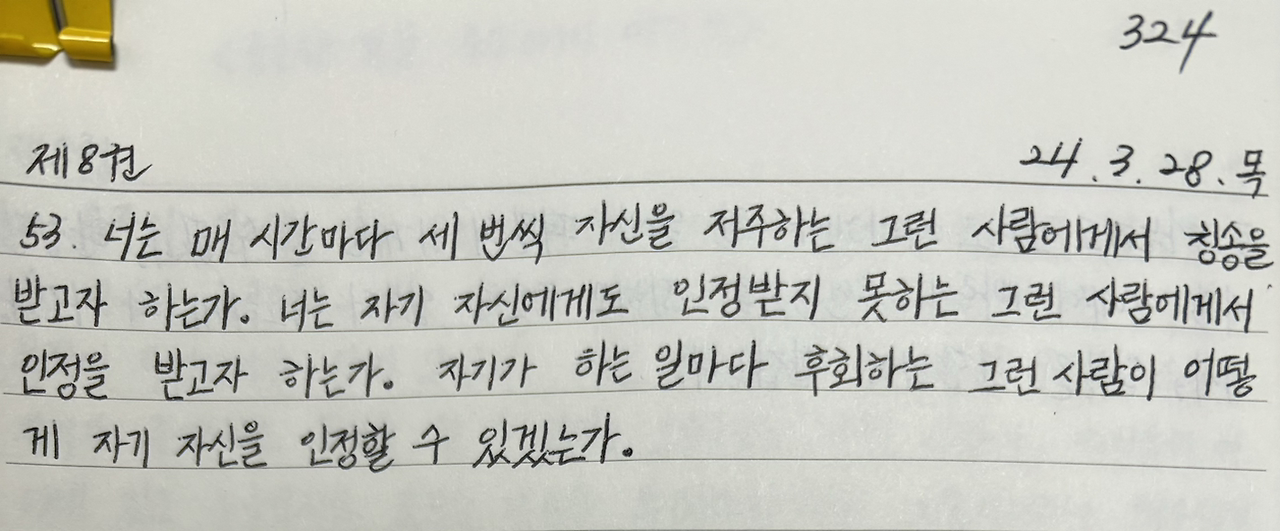 324
제8권 24.3.28.목
53. 너는 매 시간마다 세 번씩 자신을 저주하는 그런 사람에게서 칭송을
받고자 하는가. 너는 자기 자신에게도 인정받지 못하는 그런 사람에게서
인정을 받고자 하는가. 자기가 하는 일마다 후회하는 그런 사람이 어떻
게 자기 자신을 인정할 수 있겠는가.